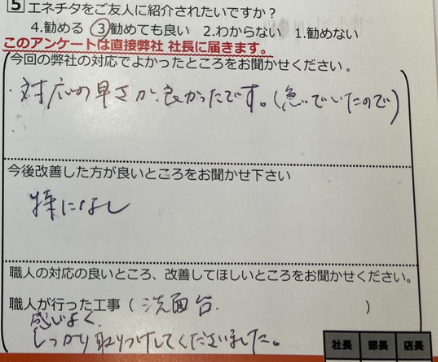 5 エネチタをご友人に紹介されたいですか？
4.勧める ③勧めても良い 2.わからない 1.勧めない
このアンケートは直接弊社 社長に届きます。
今回の弊社の対応でよかったところをお聞かせください。
・対応の早さが、良かったです。(急いでいたので)
今後改善した方が良いところをお聞かせ下さい
特になし
職人の対応の良いところ、改善してほしいところをお聞かせください。
職人が行った工事（ 洗面台 ）
感じよく、
しっかり取りつけしてくださいました。
社長 部長 店長